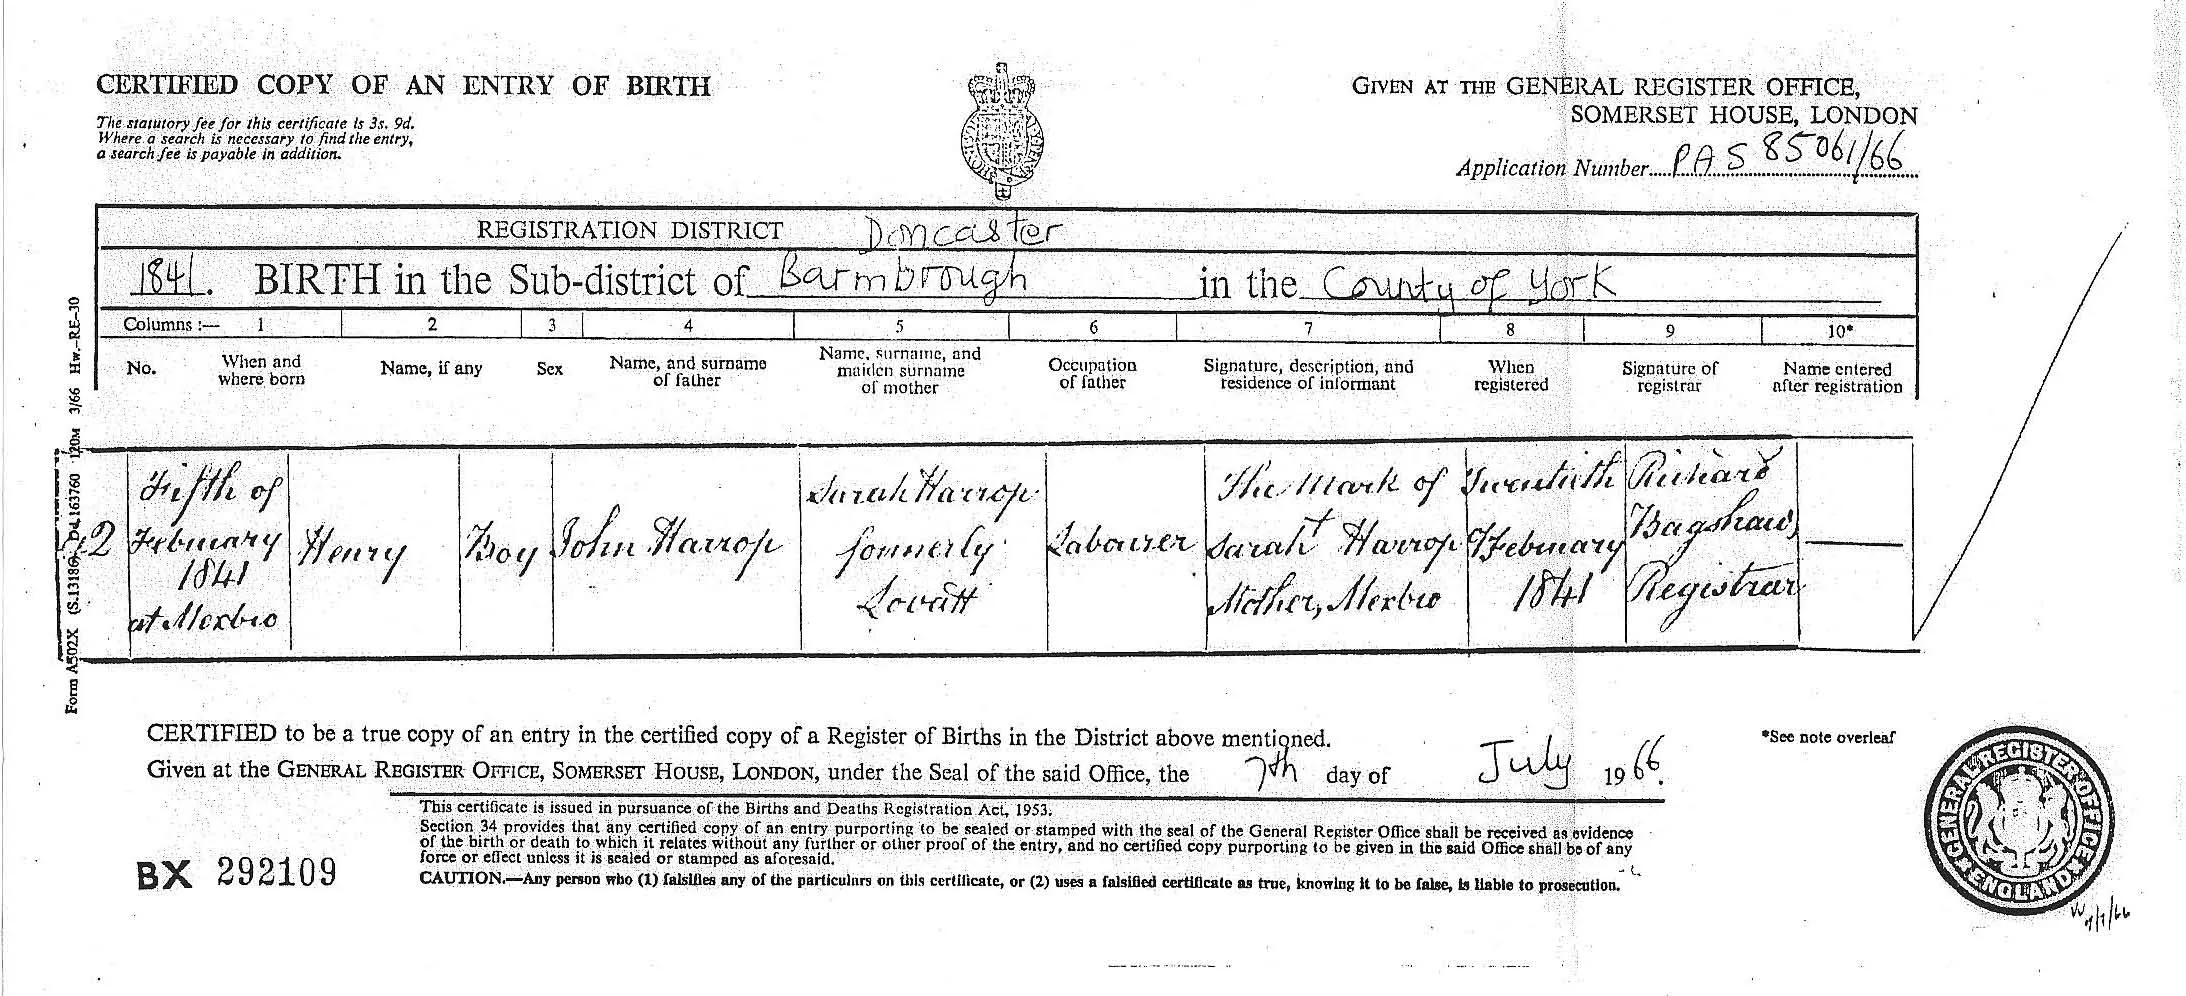 CERTIFIED COPY OF AN ENTRY OF BIRTH
The statutory fee for this certificate is 3s. 9d.
Where a search is necessary to find the entry,
a search fee is payable in addition.
GIVEN AT THE GENERAL REGISTER OFFICE,
SOMERSET HOUSE, LONDON
Application Number PAS 85061/66
REGISTRATION DISTRICT Doncaster
1841. BIRTH in the Sub-district of Barmbrough in the County of York
Columns :— 1 2 3 4 5 6 7 8 9 10*
No.
When and
where born
Name, if any
Sex
Name, and surname
of father
Name, surname, and
maiden surname
of mother
Occupation
of father
Signature, description, and
residence of informant
When
registered
Signature of
registrar
Name entered
after registration
Fifth of
February
1841
at Mexbro
Henry
Boy
John Harrop
Sarah Harrop
formerly
Lovatt
Labourer
The Mark of
Sarah + Harrop
Mother, Mexbro
Twentieth
February
1841
Richard
Bagshaw,
Registrar
Form A502X (S.13186) Dd.163760 120M 3/66 Hw.—RE—30
CERTIFIED to be a true copy of an entry in the certified copy of a Register of Births in the District above mentioned.
Given at the GENERAL REGISTER OFFICE, SOMERSET HOUSE, LONDON, under the Seal of the said Office, the 7th day of July 1966.
*See note overleaf
This certificate is issued in pursuance of the Births and Deaths Registration Act, 1953.
Section 34 provides that any certified copy of an entry purporting to be sealed or stamped with the seal of the General Register Office shall be received as evidence
of the birth or death to which it relates without any further or other proof of the entry, and no certified copy purporting to be given in the said Office shall be of any
force or effect unless it is sealed or stamped as aforesaid.
CAUTION.—Any person who (1) falsifies any of the particulars on this certificate, or (2) uses a falsified certificate as true, knowing it to be false, is liable to prosecution.
BX 292109
GENERAL REGISTER OFFICE
ENGLAND
7/7/66